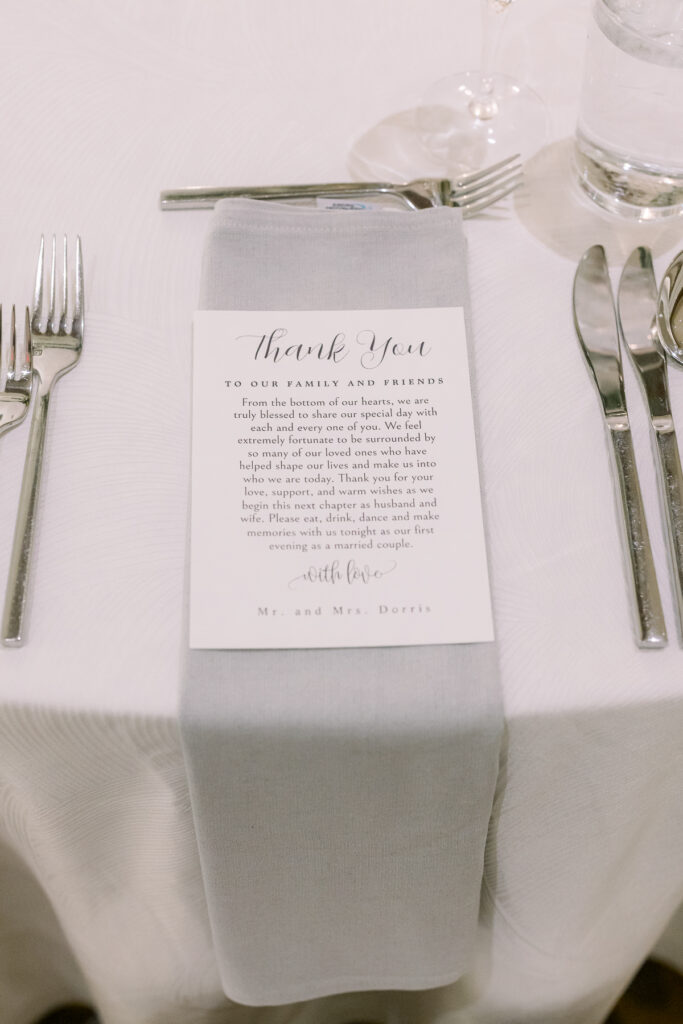 Thank You
TO OUR FAMILY AND FRIENDS
From the bottom of our hearts, we are
truly blessed to share our special day with
each and every one of you. We feel
extremely fortunate to be surrounded by
so many of our loved ones who have
helped shape our lives and make us into
who we are today. Thank you for your
love, support, and warm wishes as we
begin this next chapter as husband and
wife. Please eat, drink, dance and make
memories with us tonight as our first
evening as a married couple.
with love
Mr. and Mrs. Dorris